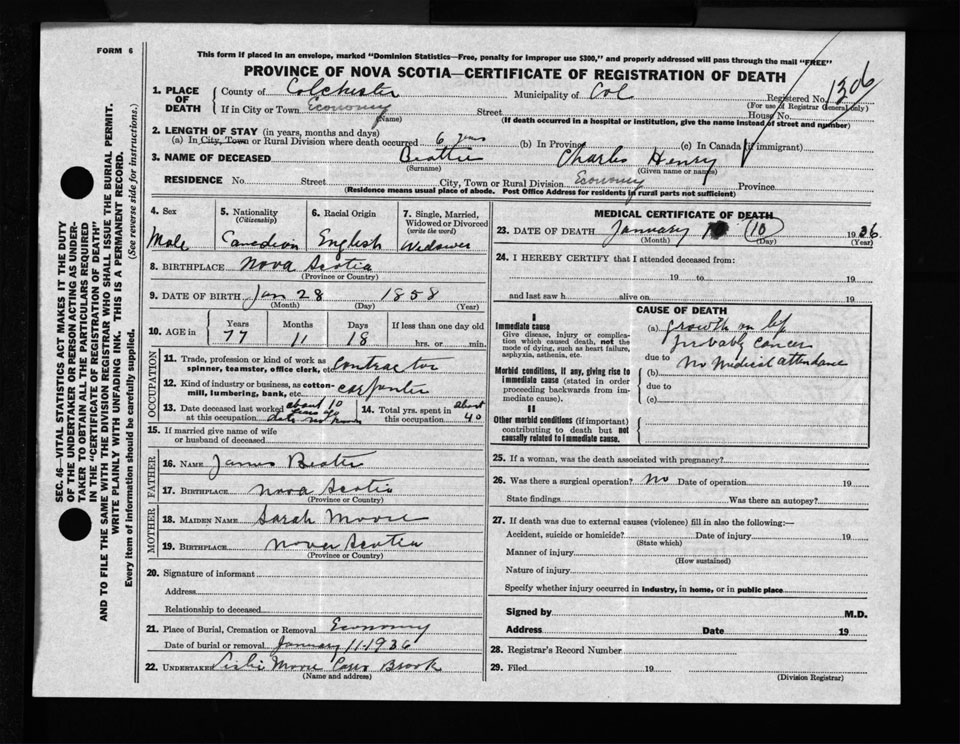 FORM 6
This form if placed in an envelope, marked "Dominion Statistics—Free, penalty for improper use $300," and properly addressed will pass through the mail "FREE"
PROVINCE OF NOVA SCOTIA—CERTIFICATE OF REGISTRATION OF DEATH
1. PLACE OF DEATH
County of Colchester Municipality of Col Registered No. 1306
(For use of Registrar General only)
If in City or Town Economy Street House No.
(Name) (If death occurred in a hospital or institution, give the name instead of street and number)
2. LENGTH OF STAY (in years, months and days)
(a) In City, Town or Rural Division where death occurred 6 years (b) In Province (c) In Canada (if immigrant)
3. NAME OF DECEASED Beattie Charles Henry
(Surname) (Given name or names)
RESIDENCE No. Street City, Town or Rural Division Economy Province
(Residence means usual place of abode. Post Office Address for residents in rural parts not sufficient)
4. Sex
Male
5. Nationality
(Citizenship)
Canadian
6. Racial Origin
English
7. Single, Married, Widowed or Divorced
(write the word)
Widower
8. BIRTHPLACE Nova Scotia
(Province or Country)
9. DATE OF BIRTH Jan 28 1858
(Month) (Day) (Year)
10. AGE in
Years Months Days If less than one day old
77 11 18 hrs. or min.
OCCUPATION
11. Trade, profession or kind of work as spinner, teamster, office clerk, etc. Contractor
12. Kind of industry or business, as cotton-mill, lumbering, bank, etc. carpenter
13. Date deceased last worked at this occupation about 10 years ago
14. Total yrs. spent in this occupation about 40
15. If married give name of wife or husband of deceased
FATHER
16. NAME James Beattie
17. BIRTHPLACE Nova Scotia
(Province or Country)
MOTHER
18. MAIDEN NAME Sarah Moore
19. BIRTHPLACE Nova Scotia
(Province or Country)
20. Signature of informant
Address
Relationship to deceased
21. Place of Burial, Cremation or Removal Economy
Date of burial or removal January 11-1936
22. UNDERTAKER Leslie Moore Brook
(Name and address)
MEDICAL CERTIFICATE OF DEATH
23. DATE OF DEATH January 10 1936.
(Month) (Day) (Year)
24. I HEREBY CERTIFY that I attended deceased from:
19 to 19
and last saw h alive on 19
CAUSE OF DEATH
I
Immediate cause
Give disease, injury or complication which caused death, not the mode of dying, such as heart failure, asphyxia, asthenia, etc.
(a) growth on lip
probably cancer
due to No Medical attendance
Morbid conditions, if any, giving rise to immediate cause (stated in order proceeding backwards from immediate cause).
(b)
due to
(c)
II
Other morbid conditions (if important) contributing to death but not causally related to immediate cause.
25. If a woman, was the death associated with pregnancy?
26. Was there surgical operation? No Date of operation 19
State findings Was there an autopsy?
27. If death was due to external causes (violence) fill in also the following:—
Accident, suicide or homicide? Date of injury 19
(State which)
Manner of injury
(How sustained)
Nature of injury
Specify whether injury occurred in industry, in home, or in public place
Signed by M.D.
Address Date 19
28. Registrar's Record Number
29. Filed 19
(Division Registrar)
SEC. 46—VITAL STATISTICS ACT MAKES IT THE DUTY
OF THE UNDERTAKER OR PERSON ACTING AS UNDER-
TAKER TO OBTAIN ALL THE PARTICULARS REQUIRED
IN THE "CERTIFICATE OF REGISTRATION OF DEATH"
AND TO FILE THE SAME WITH THE DIVISION REGISTRAR WHO SHALL ISSUE THE BURIAL PERMIT.
WRITE PLAINLY WITH UNFADING INK. THIS IS A PERMANENT RECORD.
Every item of information should be carefully supplied. (See reverse side for instructions.)